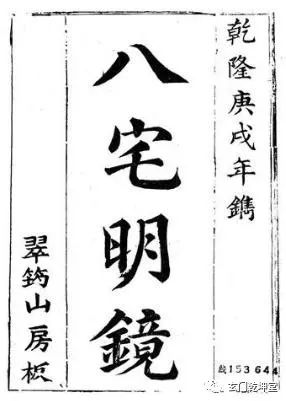 乾隆庚戌年鐫
八宅明鏡
翠筠山房板
153644
玄门乾坤堂